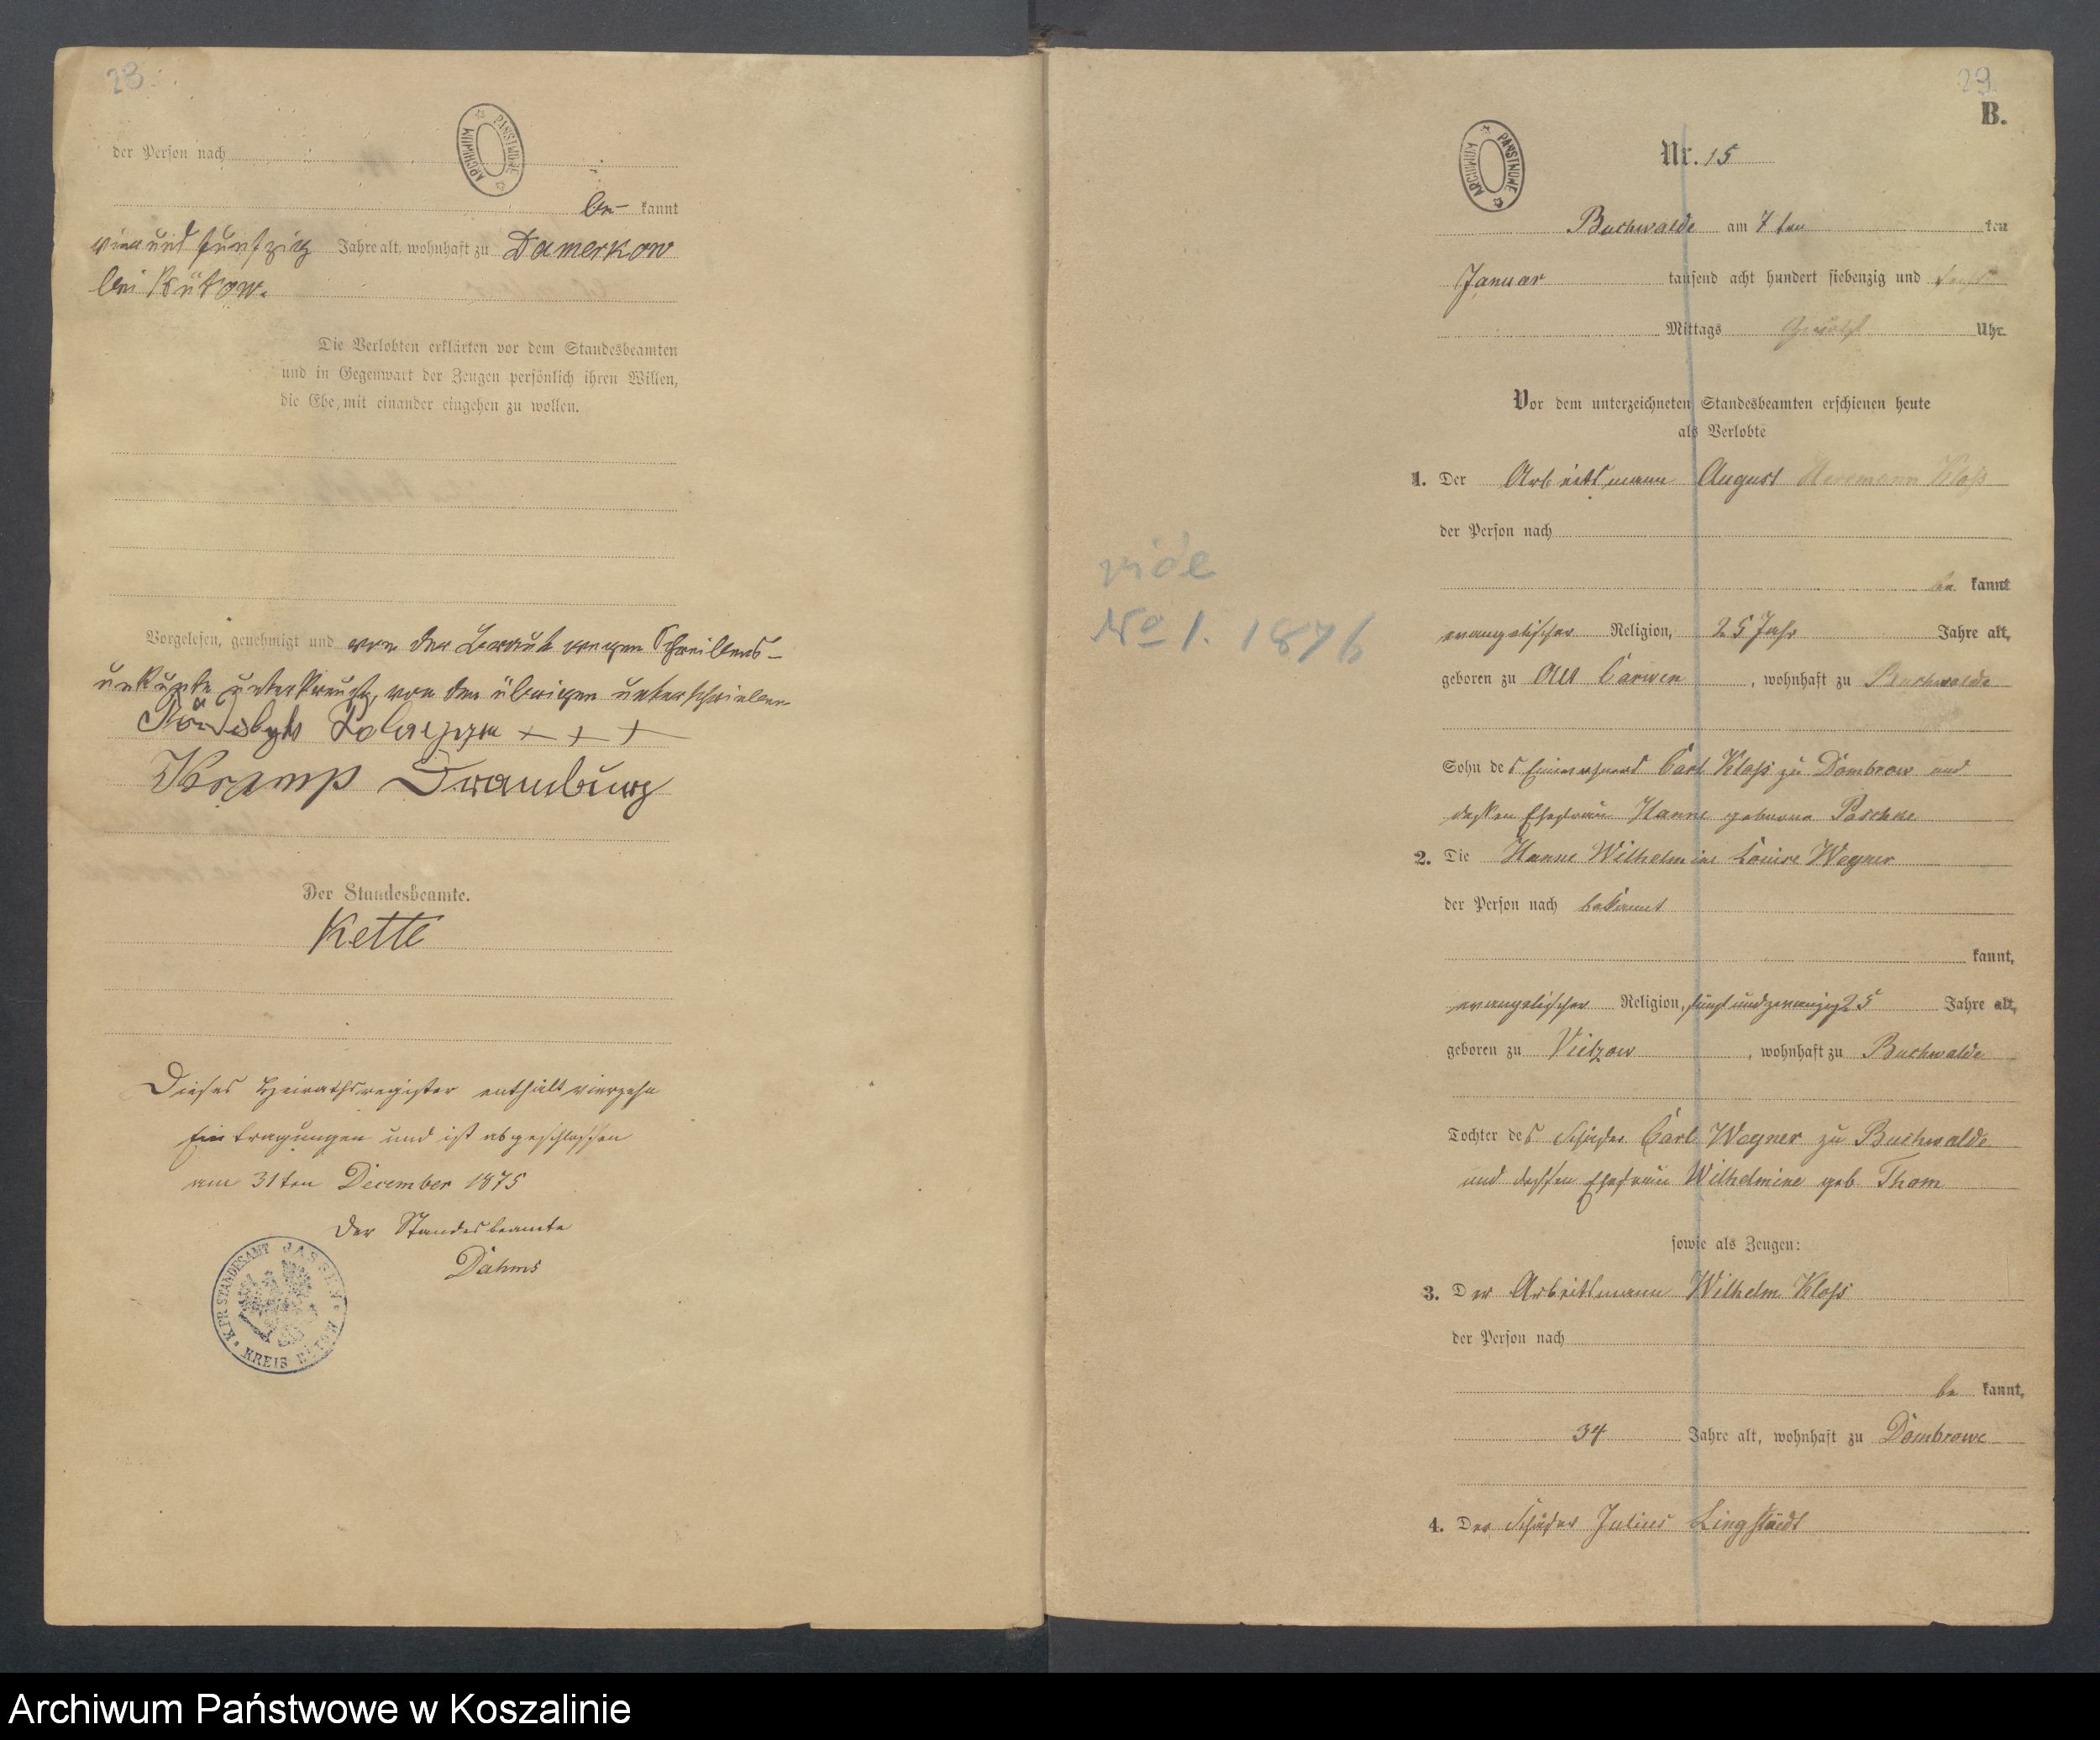 28
ARCHIWUM PAŃSTWOWE
der Person nach
be- kannt
vierundfünfzig Jahre alt, wohnhaft zu Damerkow
bei Bütow.
Die Verlobten erklärten vor dem Standesbeamten
und in Gegenwart der Zeugen persönlich ihren Willen,
die Ehe mit einander eingehen zu wollen.
Vorgelesen, genehmigt und von der Braut wegen Schreibens-
unkunde unterkreuzt, von den übrigen unterschrieben
+ + +
Kramp Dramburg
Der Standesbeamte.
Kette
Dieses Heirathsregister enthält vierzehn
Eintragungen und ist abgeschlossen
am 31ten December 1875
Der Standesbeamte
Dahms
K. PR. STANDESAMT JASSEN KREIS BÜTOW
29
B.
ARCHIWUM PAŃSTWOWE
Nr. 15
Buchwalde am 7 ten ten
Januar tausend acht hundert siebenzig und sechs
Mittags Uhr
Vor dem unterzeichneten Standesbeamten erschienen heute
als Verlobte
1. Der Arbeitsmann August Hermann Kloß
der Person nach
vide
be kannt
No 1. 1876
evangelischer Religion, 25 Jahr Jahre alt,
geboren zu Alt Carwen, wohnhaft zu Buchwalde
Sohn des Einwohners Carl Kloß zu Dombrow und
dessen Ehefrau Hanne geborene Paschke
2. Die Hanne Wilhelmine Louise Wagner
der Person nach bekannt
kannt,
evangelischer Religion, fünfundzwanzig 25 Jahre alt,
geboren zu Vietzow, wohnhaft zu Buchwalde
Tochter des Schäfer Carl Wagner zu Buchwalde
und dessen Ehefrau Wilhelmine geb Thom
sowie als Zeugen:
3. Der Arbeitsmann Wilhelm Kloß
der Person nach
be kannt,
34 Jahre alt, wohnhaft zu Dombrowe
4. Der Schäfer Julius Lingstädt
Archiwum Państwowe w Koszalinie